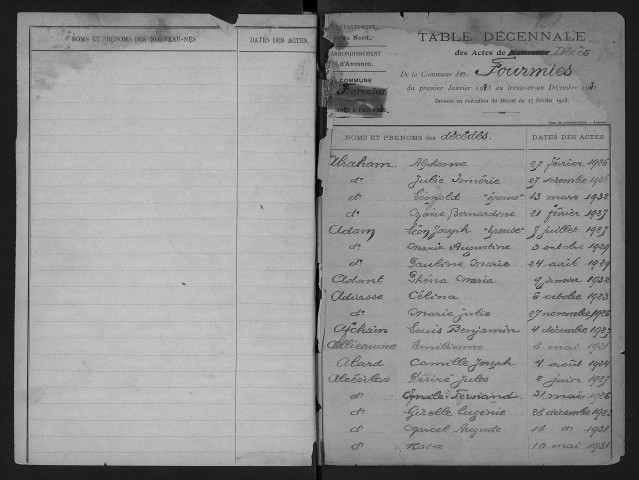 NOMS ET PRÉNOMS DES NOUVEAU-NÉS
DATES DES ACTES.
DÉPARTEMENT
du Nord.
ARRONDISSEMENT
d'Avesnes.
COMMUNE
Fourmies
TABLE DÉCENNALE
des Actes de Décès
De la Commune de Fourmies
du premier Janvier 1923 au trente-et-un Décembre
Dressée en exécution du Décret du
NOMS ET PRÉNOMS des décédés.
DATES DES ACTES
Abraham Alphonse 27 février 1926
d° Julie 27 décembre 1926
d° Léopold "épouse" 13 mars 1932
d° Bernardine 21 février 1927
Adam Léon Joseph "épouse" 7 juillet 1927
d° Marie Augustine 3 octobre 1929
d° Pauline Marie 24 avril 1929
Adant Maria 9 janvier 1932
Adrasse Célina 6 octobre 1923
d° Marie Julie 27 novembre 1926
Afchain Louis Benjamin 4 décembre 1927
Allieaume Emilienne 6 mai 1931
Alard Camille Joseph 4 août 1924
Désiré Jules 2 juin 1927
d° Emile Fernand 31 mai 1926
d° Giselle Eugénie 28 décembre
d° Marcel Auguste 16 d° 1931
d° Rosa 10 mai 1931